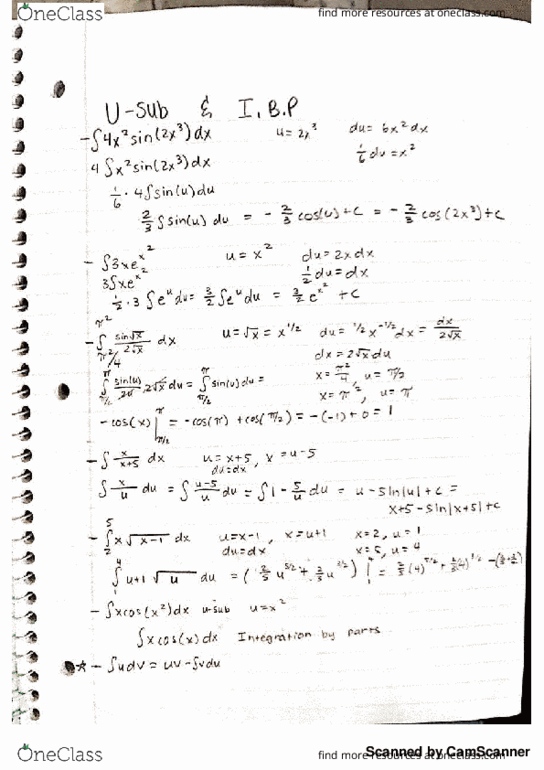 OneClass
find more resources at oneclass.com
U-sub & I.B.P
- ∫4x² sin(2x³)dx u = 2x³ du = 6x² dx
4 ∫x² sin(2x³)dx 1/6 du = x²
1/6 · 4∫sin(u)du
2/3 ∫sin(u) du = - 2/3 cos(u) + C = - 2/3 cos(2x³) + C
- ∫3xe^x² u = x² du = 2x dx
3∫xe^x² 1/2 du = dx
1/2 · 3 ∫e^u du = 3/2 ∫e^u du = 3/2 e^x² + C
- ∫_{π²/4}^{π²} sin√x / 2√x dx u = √x = x^1/2 du = 1/2 x^-1/2 dx = dx / 2√x
dx = 2√x du
∫_{π/2}^{π} sin(u) / 2u · 2√x du = ∫_{π/2}^{π} sin(u) du = x = π²/4, u = π/2
x = π², u = π
-cos(x) |_{π/2}^{π} = -cos(π) + cos(π/2) = -(-1) + 0 = 1
- ∫ x / x+5 dx u = x+5, x = u-5
du = dx
∫ x/u du = ∫ u-5 / u du = ∫1 - 5/u du = u - 5 ln|u| + C =
x+5 - 5 ln|x+5| + C
- ∫_2^5 x√x-1 dx u = x-1, x = u+1 x = 2, u = 1
du = dx x = 5, u = 4
∫_1^4 u+1 √u du = (2/5 u^5/2 + 2/3 u^3/2) |_1^4 = 2/5 (4)^5/2 + 2/3 (4)^3/2 - (2/5 + 2/3)
- ∫xcos(x²)dx u-sub u = x²
∫x cos(x) dx Integration by parts
★ - ∫udv = uv - ∫vdu
Scanned by CamScanner
OneClass
find more resources at oneclass.com